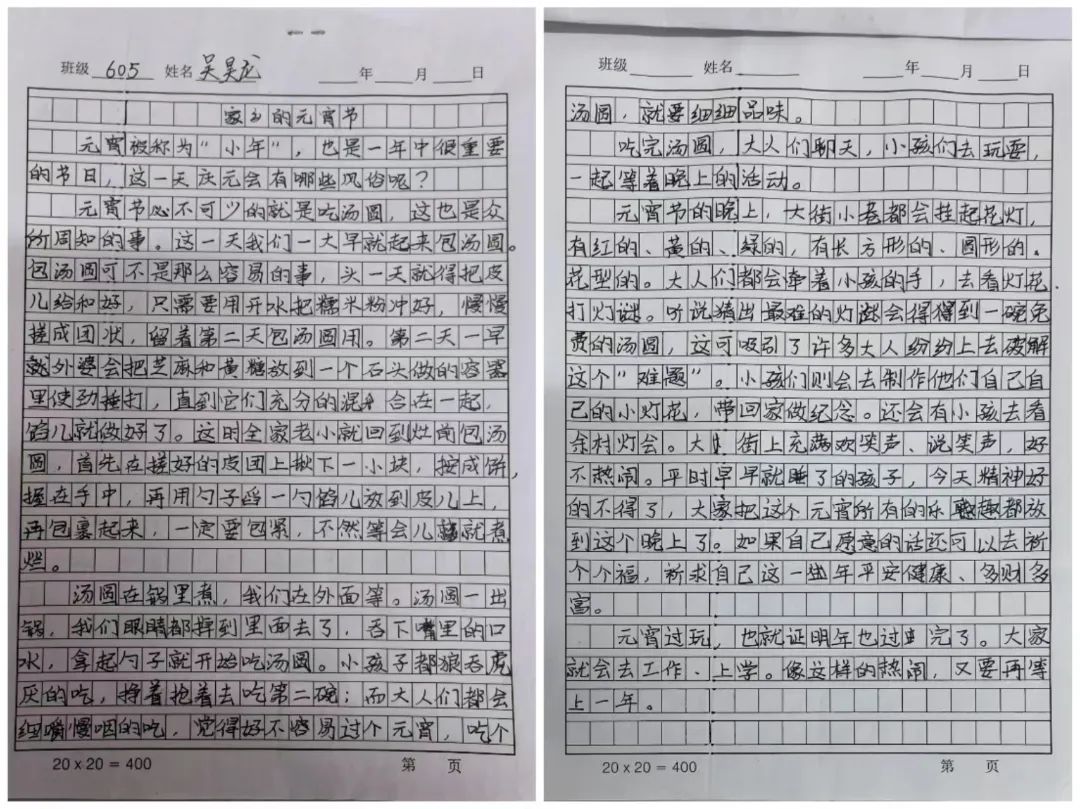 班级 605 姓名 吴昊龙 年 月 日
家乡的元宵节
元宵被称为“小年”，也是一年中很重要
的节日，这一天庆元会有哪些风俗呢？
元宵节必不可少的就是吃汤圆，这也是众
所周知的事。这一天我们一大早就起来包汤圆。
包汤圆可不是那么容易的事，头一天就得把皮
儿给和好，只需要用开水把糯米粉冲好，慢慢
搓成团状，留着第二天包汤圆用。第二天一早
外婆会把芝麻和黄糖放到一个石头做的容器
里使劲捶打，直到它们充分的混合在一起，
馅儿就做好了。这时全家老小就回到灶前包汤
圆，首先在搓好的皮团上揪下一小块，按成饼，
握在手中，再用勺子舀一勺馅儿放到皮儿上，
再包裹起来，一定要包紧，不然等会儿就煮
烂。
汤圆在锅里煮，我们在外面等。汤圆一出
锅，我们眼睛都掉到里面去了，吞下嘴里的口
水，拿起勺子就开始吃汤圆。小孩子都狼吞虎
厌的吃，挣着抢着去吃第二碗；而大人们都会
细嚼慢咽的吃，觉得好不容易过个元宵，吃个
20×20=400 第 页
班级 姓名 年 月 日
汤圆，就要细细品味。
吃完汤圆，大人们聊天，小孩们去玩耍，
一起等着晚上的活动。
元宵节的晚上，大街小巷都会挂起花灯，
有红的、黄的、绿的，有长方形的、圆形的、
花型的。大人们都会牵着小孩的手，去看灯花，
打灯谜。听说猜出最难的灯谜会得得到一碗免
费的汤圆，这可吸引了许多大人纷纷上去破解
这个“难题”。小孩们则会去制作他们自己自
己的小灯花，带回家做纪念。还会有小孩去看
余村灯会。大街上充满欢笑声、说笑声，好
不热闹。平时早早就睡了的孩子，今天精神好
的不得了，大家把这个元宵所有的乐趣都放
到这个晚上了。如果自己愿意的话还可以去祈
个个福，祈求自己这一年平安健康、多财多
富。
元宵过玩，也就证明年也过完了。大家
就会去工作、上学。像这样的热闹，又要再等
上一年。
20×20=400 第 页